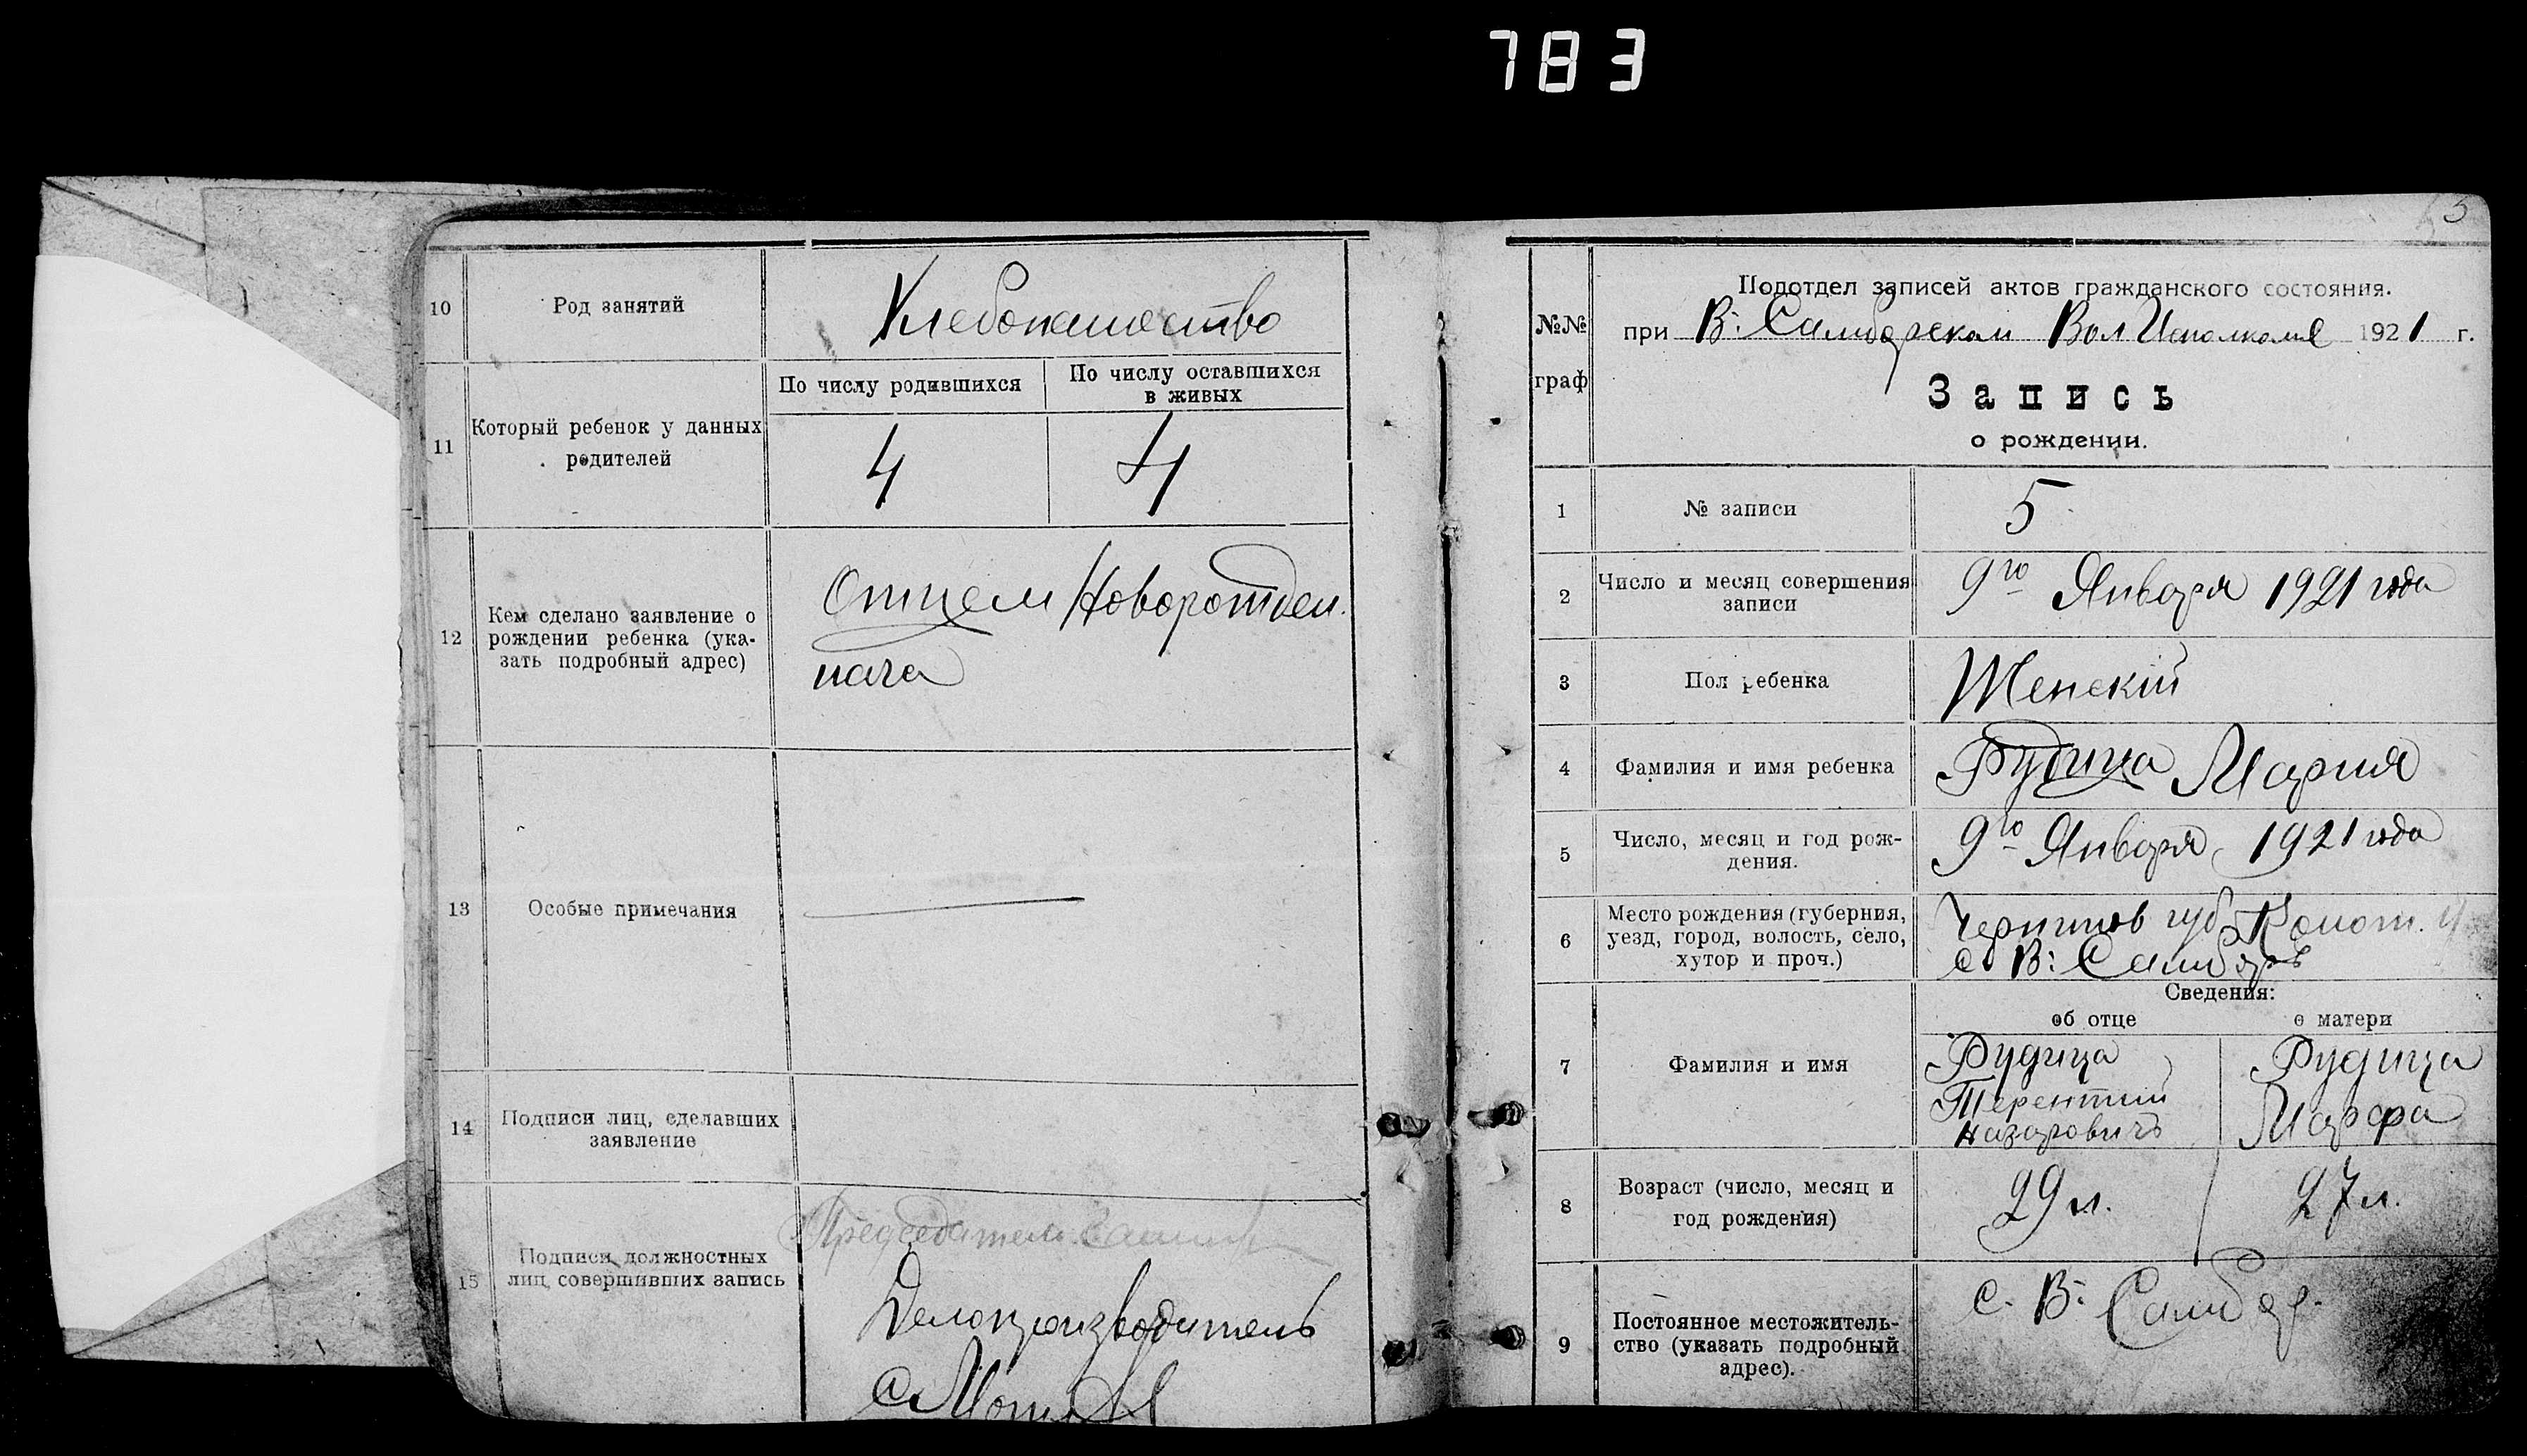 783
5
10
Род занятий
Хлебопашество
11
Который ребенок у данных
родителей
По числу родившихся
По числу оставшихся
в живых
4
4
12
Кем сделано заявление о
рождении ребенка (ука-
зать подробный адрес)
Отцем Новорожден.
наго
13
Особые примечания
14
Подписи лиц, сделавших
заявление
15
Подписи должностных
лиц совершивших запись
Председатель
Делопроизводитель
№№
граф
Подотдел записей актов гражданского состояния.
при В: Самборском ВолИсполкоме 1921 г.
Запись
о рождении.
1
№ записи
5
2
Число и месяц совершения
записи
9го Января 1921 года
3
Пол ребенка
Женскій
4
Фамилия и имя ребенка
Рудица Мария
5
Число, месяц и год рож-
дения.
9го Января 1921 года
6
Место рождения (губерния,
уезд, город, волость, село,
хутор и проч.)
Чернигов губ Конот. у
с В: Самбор
Сведения:
об отце
о матери
7
Фамилия и имя
Рудица
Терентий
Назаровичъ
Рудица
Марфа
8
Возраст (число, месяц и
год рождения)
29 л.
27 л.
9
Постоянное местожитель-
ство (указать подробный
адрес).
с. В: Самбор.